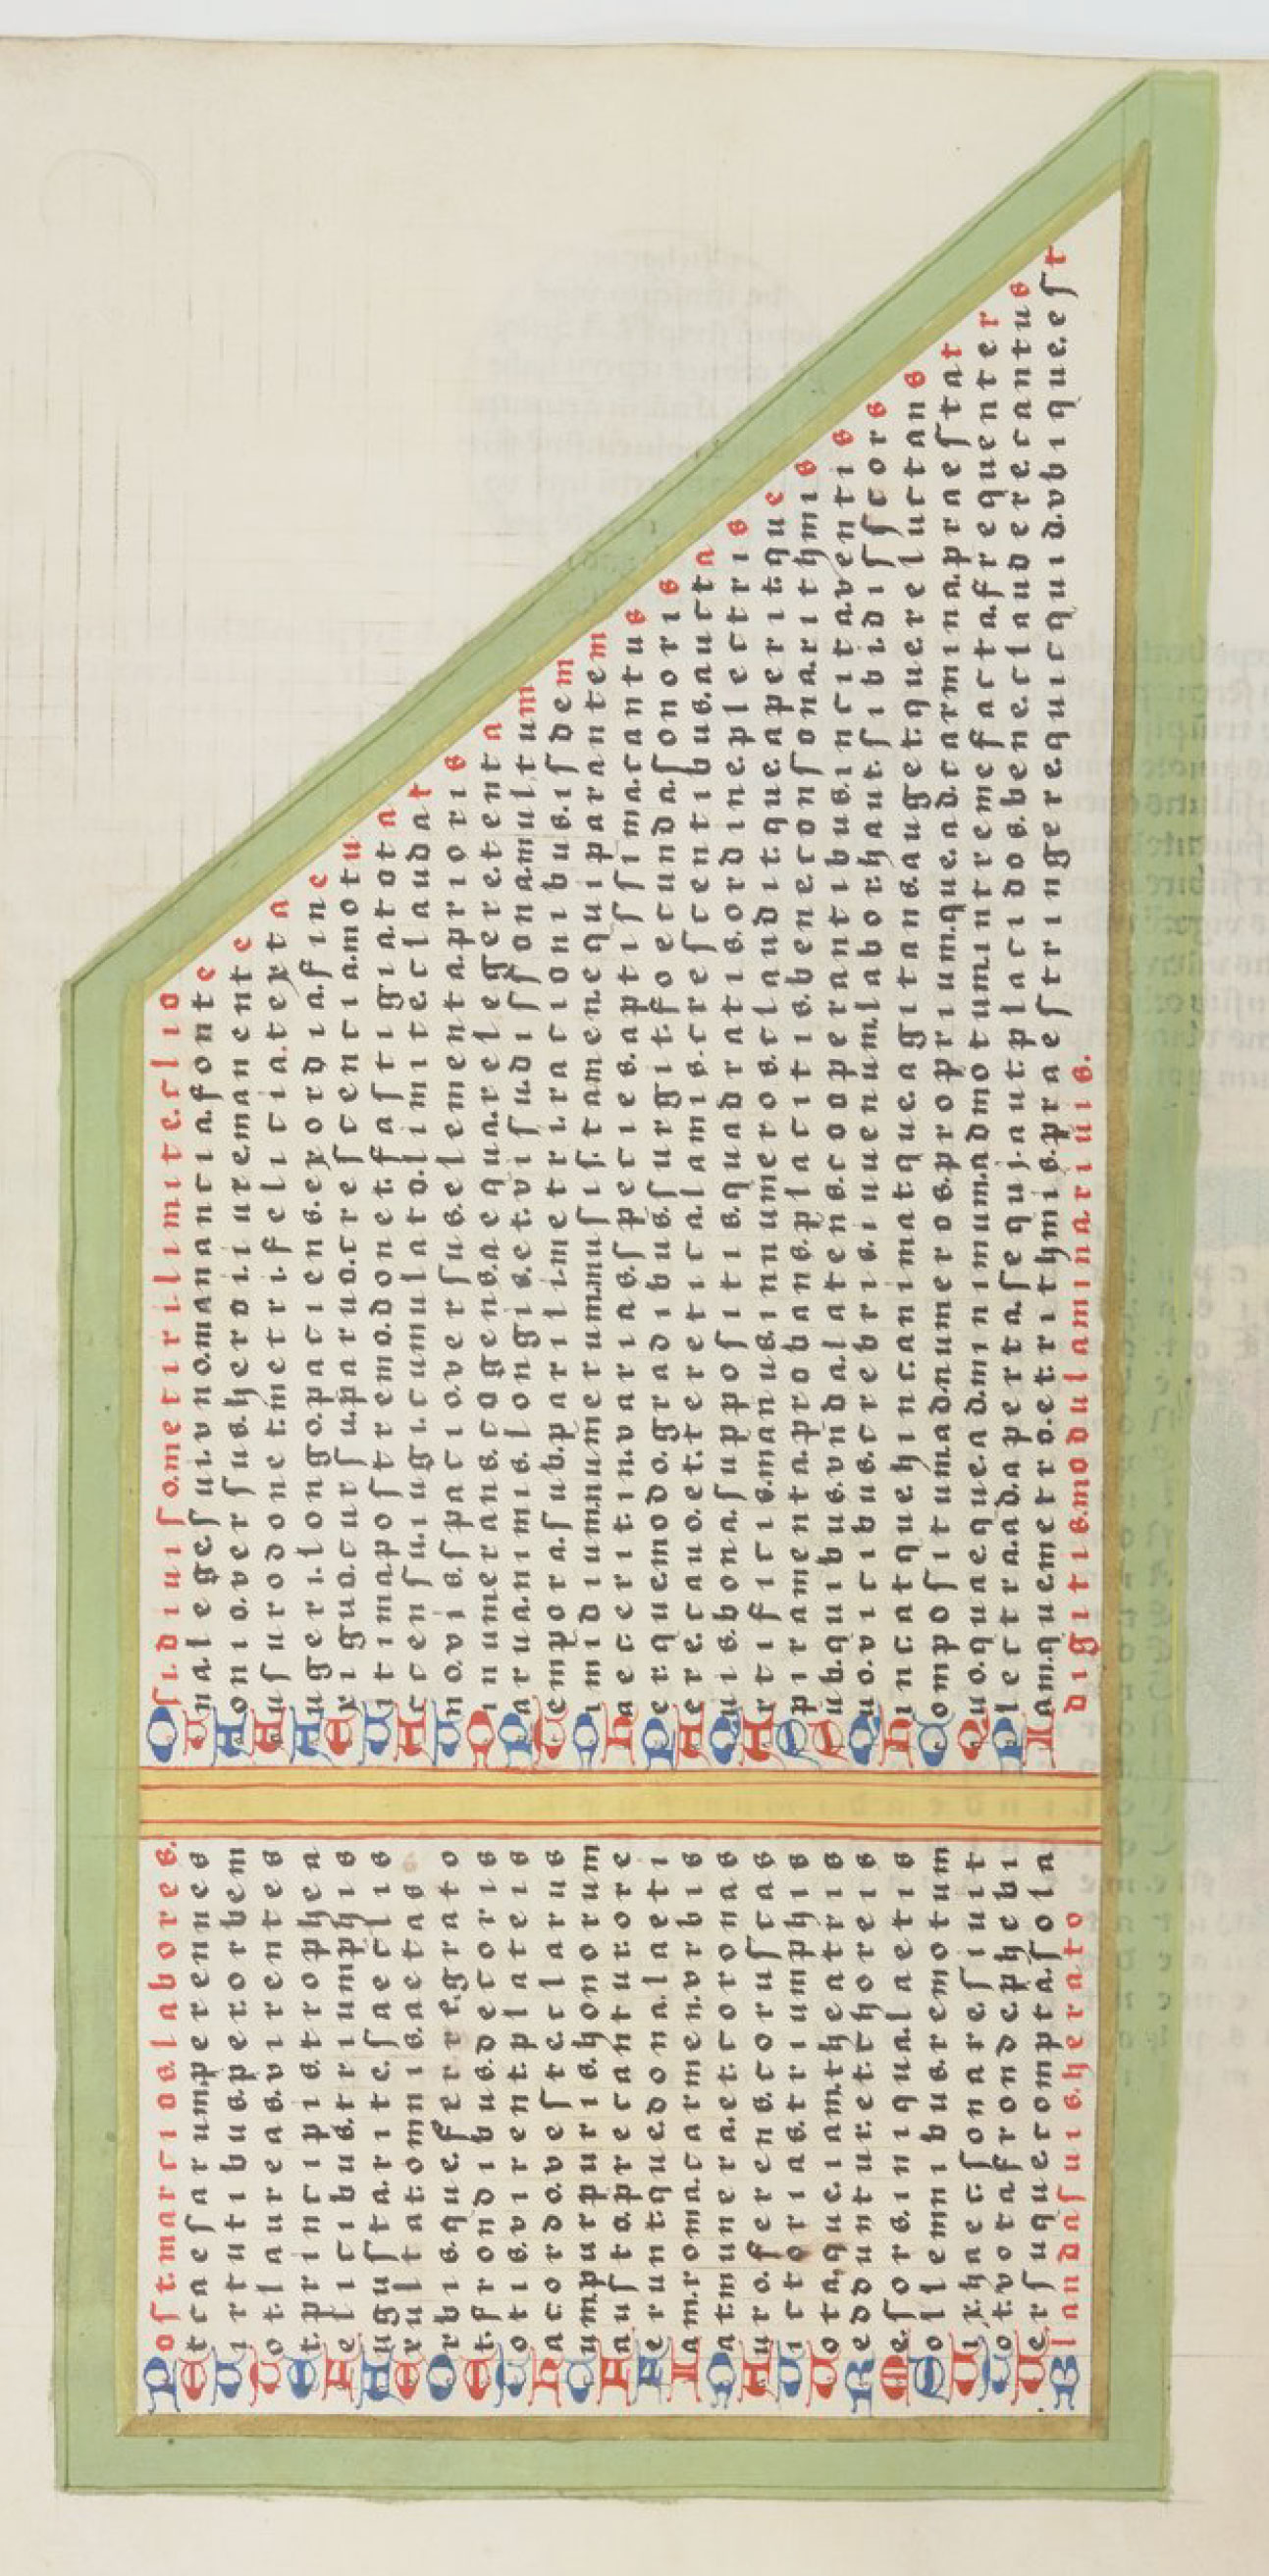 Post.martios.labores.
Et caesarum.perennes
Virtutibus.per orbem
Tot laureas.virentes
Et.principis.trophea
Felicibus.triumphis
Augusta.rite.saeclis
Exultat omnis.aetas
Orbis.que.ferre.grato
Et.frondibus.decoris
Totis.virent.plateis
Hac ordo.veste.clarus
Cum.purpuris.honorum
Fausto.precantur.ore
Ferunt.que.dona.laeti
Iam.roma.carmen.vrbis
Dat.munera.et.coronas
Auro.ferens.coruscas
Victorias.triumphis
Vota.que.iam.theatris
Redduntur.et.choreis
Me.sors.iniqua.laetis
Solemnibus.remotum
Vix.haec.sonare.siuit
Tot.vota.fronde.phebi
Versuque.compta.sola
Blandas uis herato
O si diuiso.metiri limite.clio
Una lege.sui.vno.manantia.fonte
Aonio.versus.heroi iure.manente
Ausuro donet.metri.felicia.texta
Augeri.longo.patiens.exordia.fine
Exiguo.cursu.paruo.crescentia.motu
Ultima.postremo.donet.fastigia tota
Ascensu.iugi.cumulato.limite.claudat
Uno.vis.spatio.versus.elementa.prioris
Dinumerans.cogens.aequare.lege.retenta
Parua.nimis.longis.et.visu.dissona.multum
Tempora.sub.parili.metri.rationibus.isdem
Dimidium.numerum.musis.tamen.equiparantem
Haec erit.in.varias.species.aptissima.cantus
Perque.modo.gradibus.surgit.foecunda.sonoris
Aere.cauo.et.tereti.calamis.crescentibus.aucta
Quis.bona.suppositis.quadratis.ordine.plectris
Artificis.manus.innumeros.claudit.que.aperit.que
Spiramenta.probans.placitis.bene.consona.rithmis
Sub.quibus.vnda.latens.cooperantibus.incita.ventis
Quo.vicibus.crebris.iuuenum.labor.haut.sibi.discors
Hincatque hinc.animatque.agitans.auget.que.reluctans
Compositum.ad.numeros.proprium.que.ad.carmina.praestat
Quo.quae.que.ad.minimum.admotum.intremefacta.frequenter
Plectra.adaperta.sequi.aut.placidos.bene.claudere.cantus
Iam.que.metro.et.rithmis.praestringere.quicquid.vbique.est
digitis.modulaminariuis.